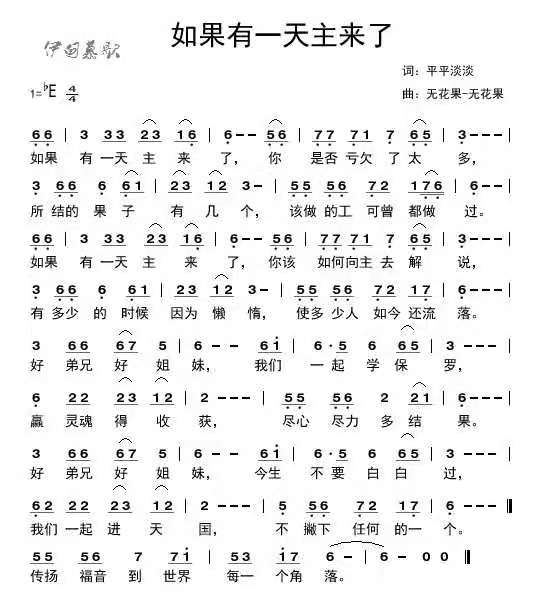 如果有一天主来了
伊甸慕歌
词：平平淡淡
1=♭E 4/4
曲：无花果-无花果
6 6 | 3 3 3 2 3 1 6 | 6 - - 5 6 | 7 7 7 1 7 6 5 | 3 - - - |
如果 有 一天 主 来 了， 你 是否 亏欠 了 太 多，
3 6 6 6 6 1 | 2 3 1 2 3 - | 5 5 5 6 7 2 1 7 6 | 6 - - - |
所 结的 果 子 有 几 个， 该做 的工 可曾 都做 过。
6 6 | 3 3 3 2 3 1 6 | 6 - - 5 6 | 7 7 7 1 7 6 5 | 3 - - - |
如果 有 一天 主 来 了， 你该 如何向主 去 解 说，
3 6 6 6 6 1 | 2 3 1 2 3 - | 5 5 5 6 7 2 1 7 | 6 - - - |
有 多少 的 时候 因为 懒 惰， 使多 少人 如今 还流 落。
3 6 6 6 7 5 | 6 - - 6 1 | 6 · 5 6 6 5 | 3 - - - |
好 弟兄 好 姐 妹， 我们 一 起 学 保 罗，
6 2 2 2 3 1 2 | 2 - - - | 5 5 5 6 2 2 1 | 6 - - - |
赢 灵魂 得 收 获， 尽心 尽力 多 结 果。
3 6 6 6 7 5 | 6 - - 6 1 | 6 · 5 6 6 5 | 3 - - - |
好 弟兄 好 姐 妹， 今生 不 要 白 白 过，
6 2 2 2 2 3 1 2 | 2 - - - | 5 5 6 7 2 1 7 | 6 - - - ‖
我们 一起 进 天 国， 不 撇下 任何 的一 个。
5 5 5 6 7 7 1 | 5 3 1 7 6 - | 6 - 0 0 ‖
传扬 福音 到 世界 每一 个角 落。